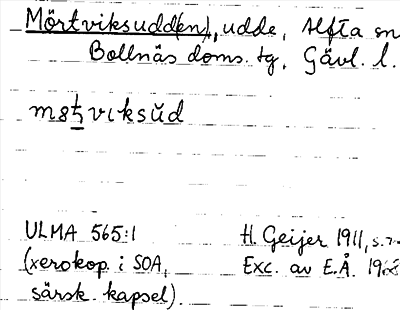 Mörtviksudd(en), udde, Alfta sn
Bollnäs doms. tg, Gävl. l.
ULMA 565:1 H. Geijer 1911, s.
(xerokop. i SOA, Exc. av E.Å. 1968
särsk. kapsel).